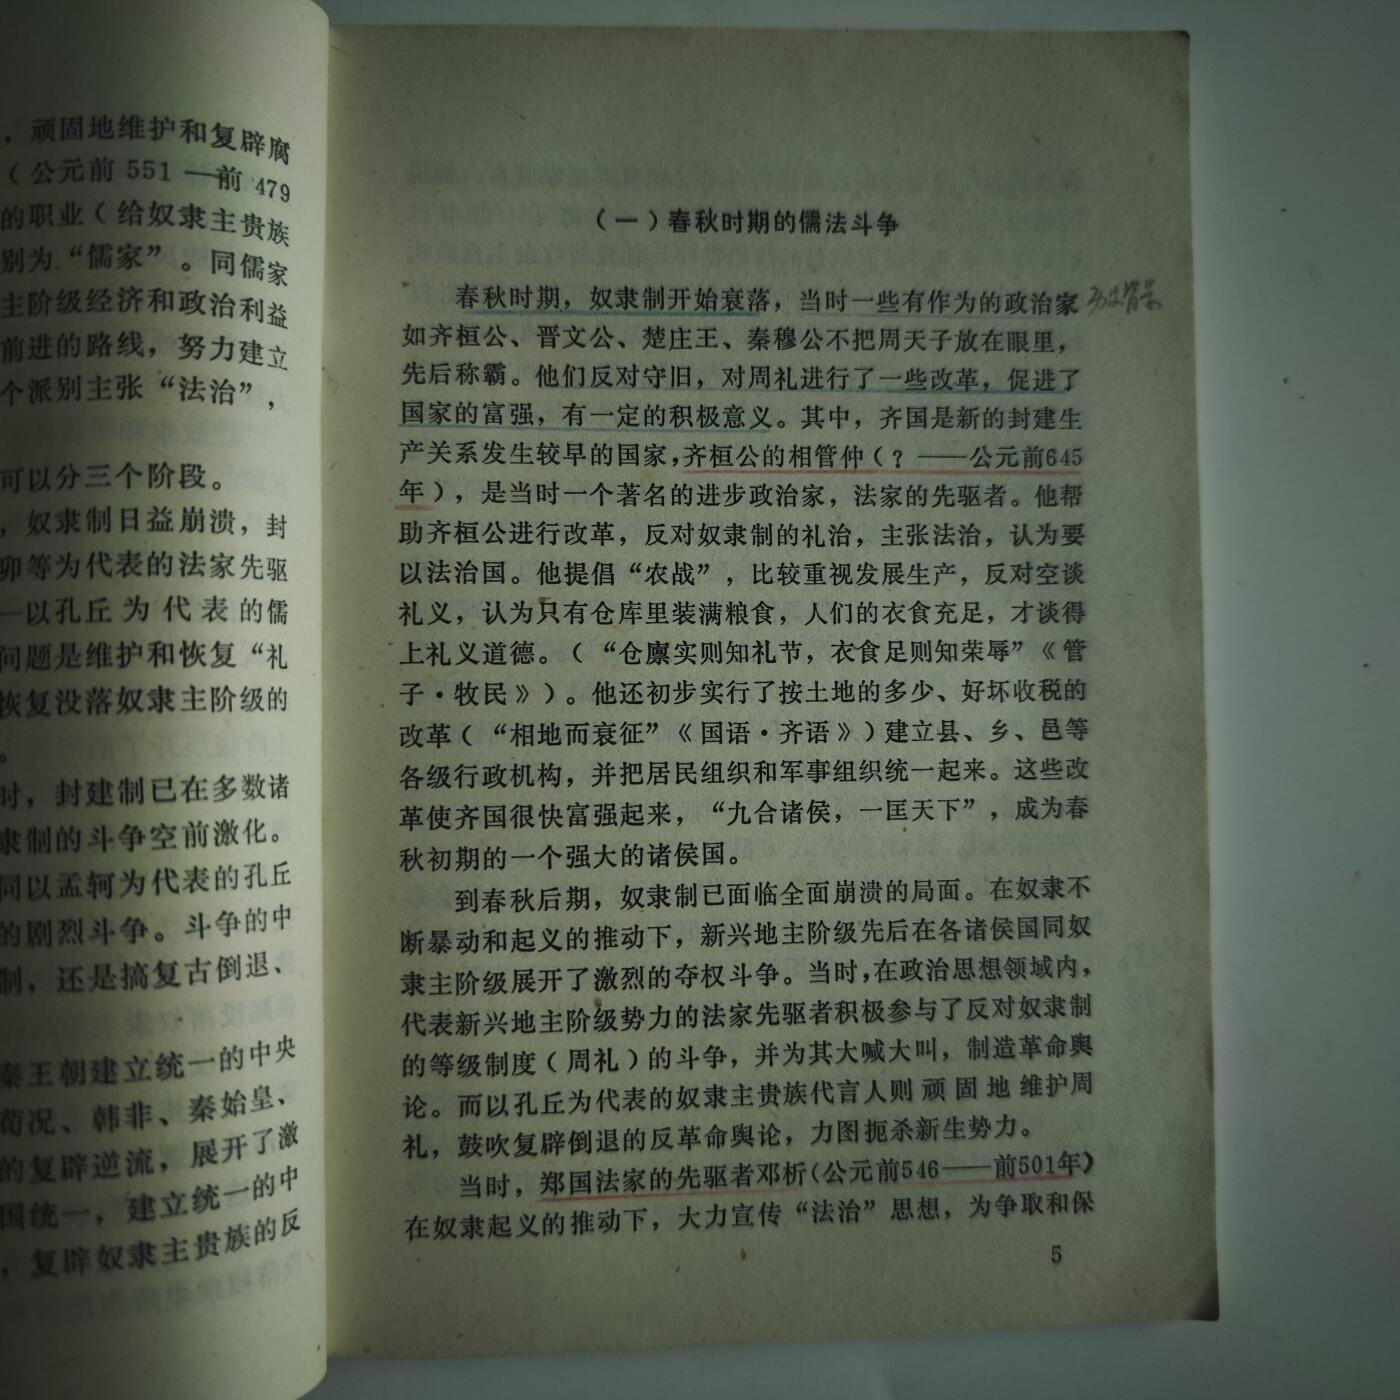 ，顽固地维护和复辟腐
（公元前 551 ——前 479
的职业（给奴隶主贵族
别为“儒家”。同儒家
主阶级经济和政治利益
前进的路线，努力建立
个派别主张“法治”，
可以分三个阶段。
，奴隶制日益崩溃，封
卯等为代表的法家先驱
—以孔丘为代表的儒
问题是维护和恢复“礼
恢复没落奴隶主阶级的
。
时，封建制已在多数诸
隶制的斗争空前激化。
同以孟轲为代表的孔丘
的剧烈斗争。斗争的中
制，还是搞复古倒退、
秦王朝建立统一的中央
荀况、韩非、秦始皇、
的复辟逆流，展开了激
国统一，建立统一的中
，复辟奴隶主贵族的反
（一）春秋时期的儒法斗争
春秋时期，奴隶制开始衰落，当时一些有作为的政治家
如齐桓公、晋文公、楚庄王、秦穆公不把周天子放在眼里，
先后称霸。他们反对守旧，对周礼进行了一些改革，促进了
国家的富强，有一定的积极意义。其中，齐国是新的封建生
产关系发生较早的国家，齐桓公的相管仲（？——公元前645
年），是当时一个著名的进步政治家，法家的先驱者。他帮
助齐桓公进行改革，反对奴隶制的礼治，主张法治，认为要
以法治国。他提倡“农战”，比较重视发展生产，反对空谈
礼义，认为只有仓库里装满粮食，人们的衣食充足，才谈得
上礼义道德。（“仓廪实则知礼节，衣食足则知荣辱”《管
子·牧民》）。他还初步实行了按土地的多少、好坏收税的
改革（“相地而衰征”《国语·齐语》）建立县、乡、邑等
各级行政机构，并把居民组织和军事组织统一起来。这些改
革使齐国很快富强起来，“九合诸侯，一匡天下”，成为春
秋初期的一个强大的诸侯国。
到春秋后期，奴隶制已面临全面崩溃的局面。在奴隶不
断暴动和起义的推动下，新兴地主阶级先后在各诸侯国同奴
隶主阶级展开了激烈的夺权斗争。当时，在政治思想领域内，
代表新兴地主阶级势力的法家先驱者积极参与了反对奴隶制
的等级制度（周礼）的斗争，并为其大喊大叫，制造革命舆
论。而以孔丘为代表的奴隶主贵族代言人则顽固地维护周
礼，鼓吹复辟倒退的反革命舆论，力图扼杀新生势力。
当时，郑国法家的先驱者邓析（公元前546——前501年）
在奴隶起义的推动下，大力宣传“法治”思想，为争取和保
5